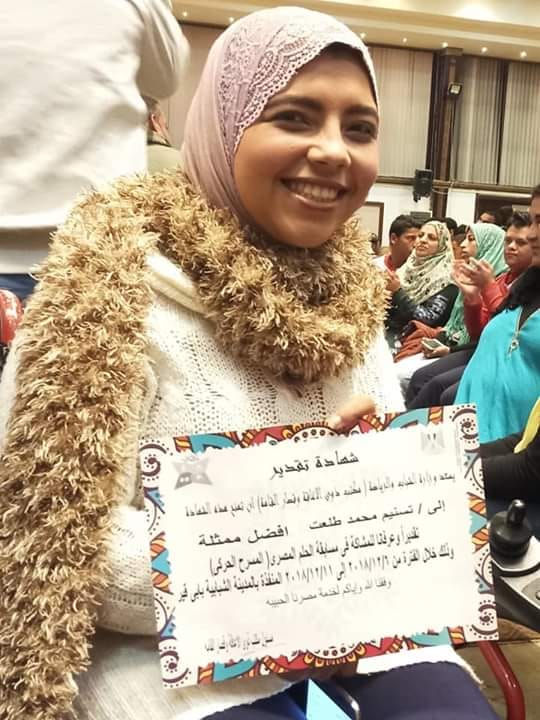 شهادة تقدير
يسعد وزارة الشباب والرياضة (مكتب ذوي الاعاقة وقصار القامة) ان تمنح هذه الشهادة
إلى / تسنيم محمد طلعت افضل ممثلة
تقديراً وعرفاناً للمشاركة في مسابقة الحلم المصرى (المسرح الحركى)
وذلك خلال الفترة من ٢٠١٨/١٢/٦ الى ٢٠١٨/١٢/١١ المنفذة بالمدينة الشبابية بابى قير
وفقنا الله وإياكم لخدمة مصرنا الحبيبه